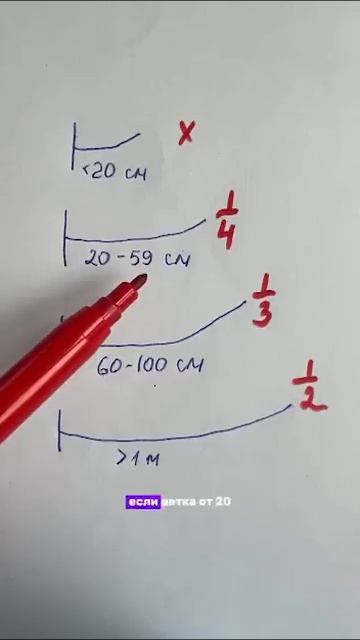 <20 см
X
1/4
20-59 см
1/3
60-100 см
1/2
>1 м
если ветка от 20